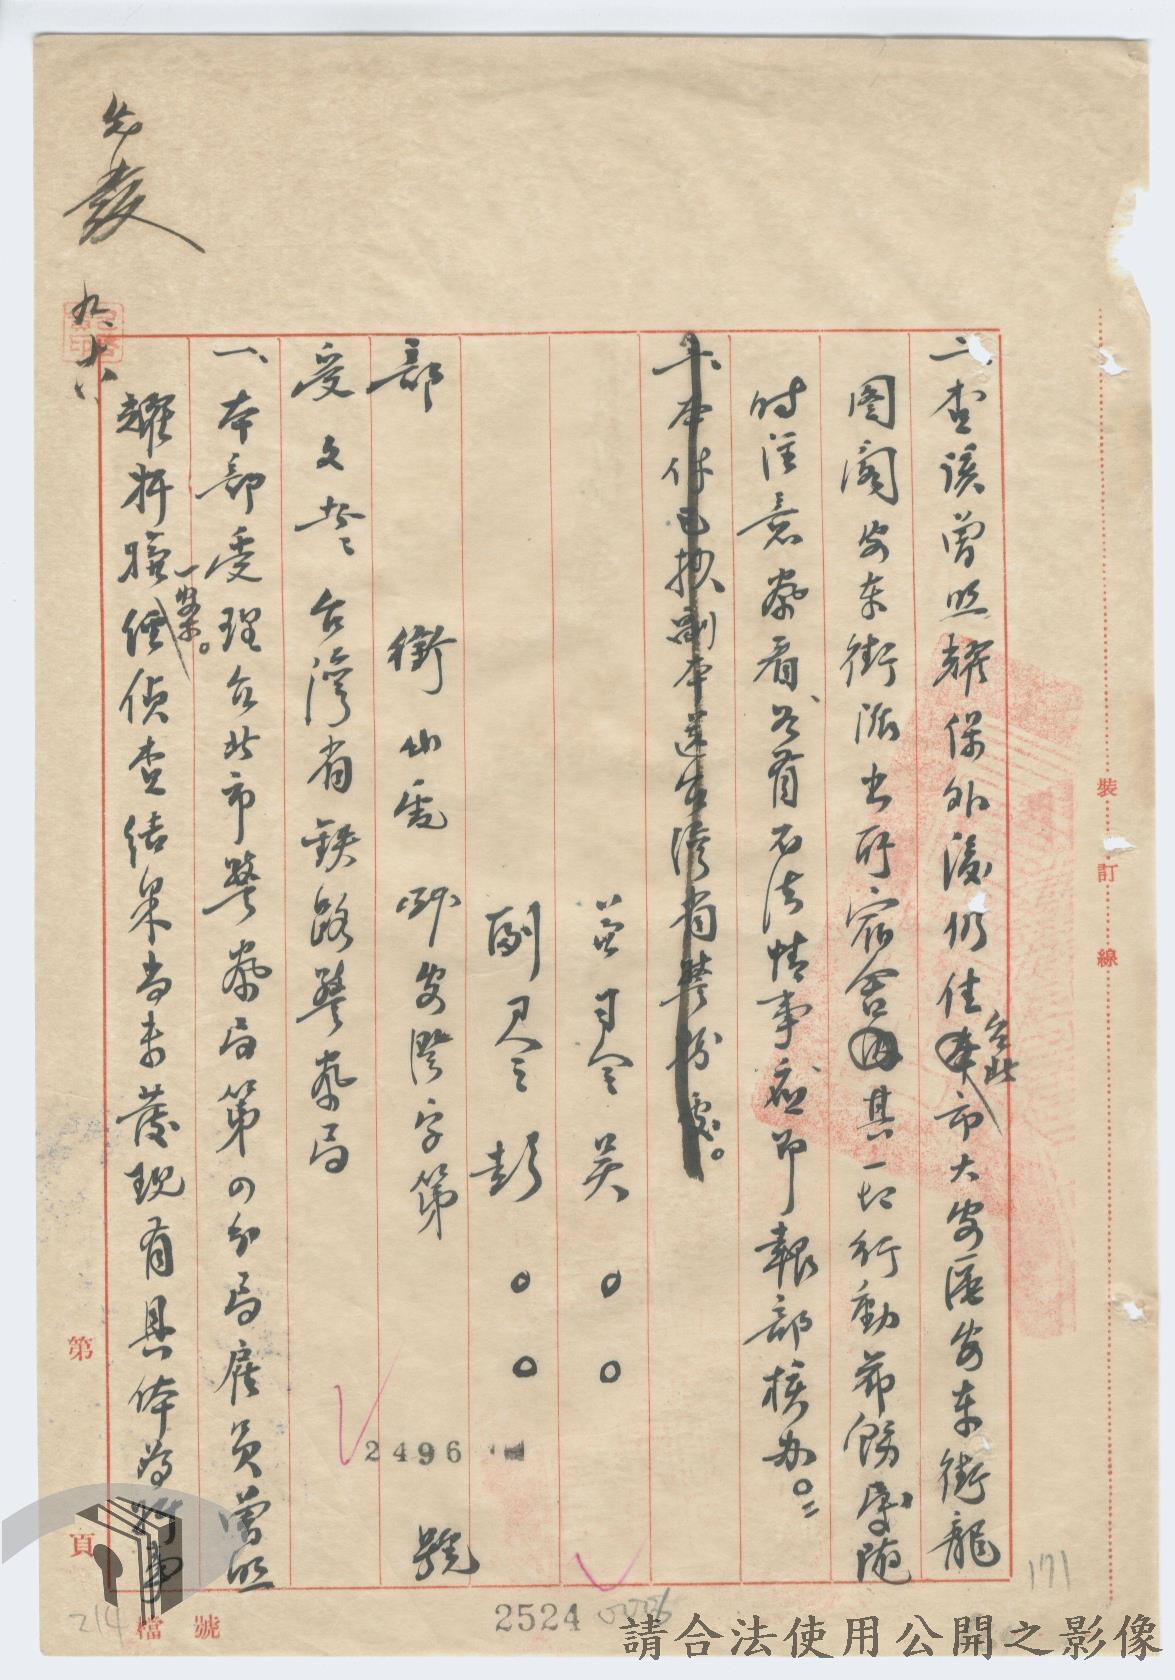 二、查該曾照耀保外後仍住台北市大安區安東街龍
園閣安東街派出所宿舍其一切行動希飭屬隨
時注意察看、若有不法情事應即報部核办。
三、本件已抄副本送台湾省警務處。
兼司令 吳○○
副司令 彭○○
部 銜 安澄字第 2496 號
受文者 台灣省鉄路警察局
一、本部受理台北市警察局第四分局雇員曾照
耀 一案。經偵查結果尚未發現有具体為
先發
九、十八
裝訂線
第 頁
檔 號
214
2524
171
請合法使用公開之影像